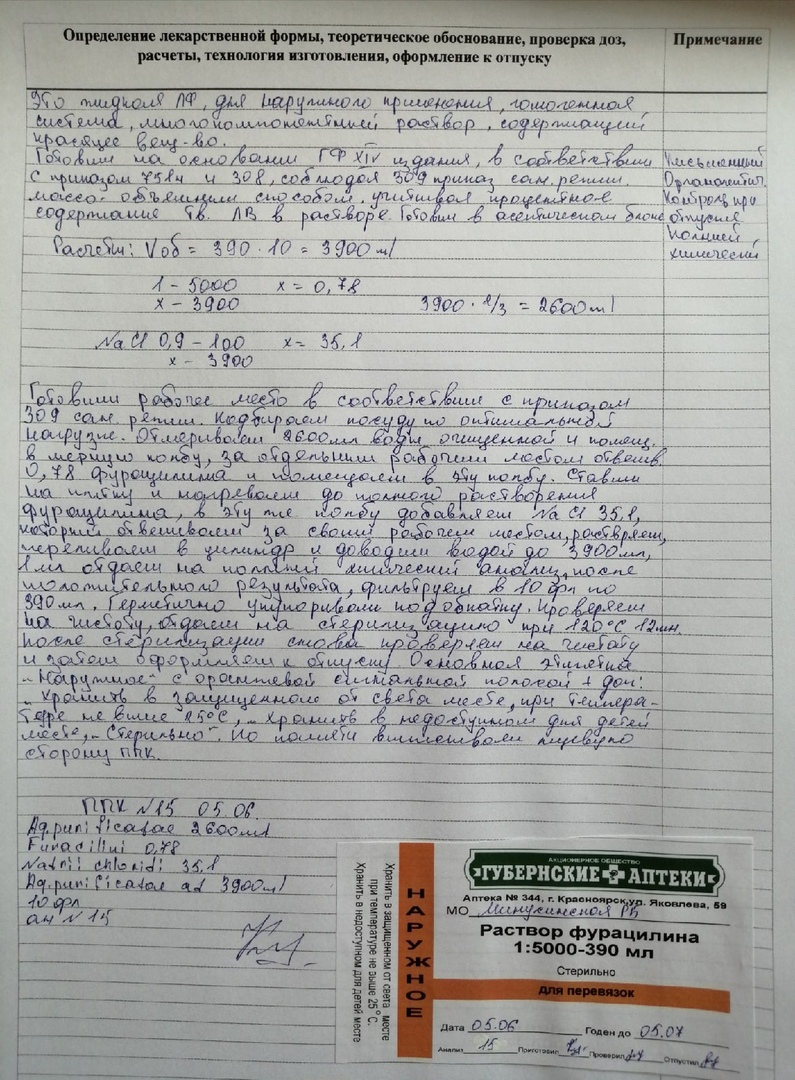 Определение лекарственной формы, теоретическое обоснование, проверка доз,
расчеты, технология изготовления, оформление к отпуску
Примечание
Это жидкая ЛФ, для наружного применения, гомогенная
система, многокомпонентный раствор, содержащий
красящее вещ-во.
Готовим на основании ГФ XIV издания, в соответствии
с приказом 751н и 308, соблюдая 309 приказ сан. режим.
массо-объемным способом, учитывая процентное
содержание тв. ЛВ в растворе. Готовим в асептическом блоке
Письменный
Органолептич.
Контроль при
отпуске
Полный
химический
Расчеты: Vоб = 390 · 10 = 3900 ml
1 - 5000 x = 0,78
x - 3900 3900 · 2/3 = 2600 ml
NaCl 0,9 - 100 x = 35,1
x - 3900
Готовим рабочее место в соответствии с приказом
309 сан. режим. Подбираем посуду по оптимальной
нагрузке. Отмериваем 2600мл воды очищенной и помещ.
в мерную колбу, за отдельным рабочим местом отвешив.
0,78 фурацилина и помещаем в эту колбу. Ставим
на плитку и нагреваем до полного растворения
фурацилина, в эту же колбу добавляем NaCl 35,1,
который отвешиваем за своим рабочем местом, раствряем,
переливаем в цилиндр и доводим водой до 3900мл,
1мл отдаем на полный химический анализ, после
положительного результата, фильтруем в 10 фл по
390мл. Герметично укупориваем под обкатку. Проверяем
на чистоту, отдаем на стерилизацию при 120°C 12мин.
После стерилизации снова проверяем на чистоту
и затем оформляем к отпуску. Основная этикетка
„Наружное" с оранжевой сигнальной полосой + доп:
„Хранить в защищенном от света месте, при темпера-
туре не выше 25°C, „Хранить в недоступном для детей
месте, „Стерильно". По памяти выписываем лицевую
сторону ППК.
ППК N15 05.06.
Aq. purificatae 2600ml
Furacilini 0,78
Natrii chloridi 35,1
Aq. purificatae ad 3900ml
10 фл
ан N 15
Хранить в защищенном от света месте
при температуре не выше 25°C.
Хранить в недоступном для детей месте
НАРУЖНОЕ
АКЦИОНЕРНОЕ ОБЩЕСТВО
ГУБЕРНСКИЕ АПТЕКИ
Аптека № 344, г. Красноярск, ул. Яковлева, 59
МО Минусинская РБ
Раствор фурацилина
1:5000-390 мл
Стерильно
для перевязок
Дата 05.06 Годен до 05.07
Анализ 15 Приготовил Проверил Отпустил